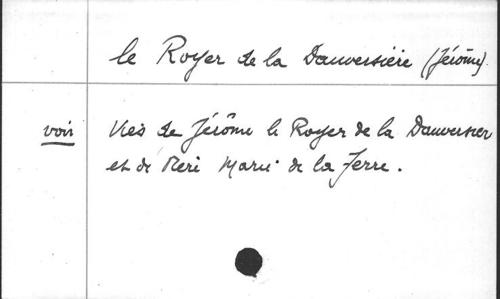 le Royer de la Dauversière (Jérôme)
voir Vies de Jérôme le Royer de la Dauversier
et de Meri Marie de la Ferre.